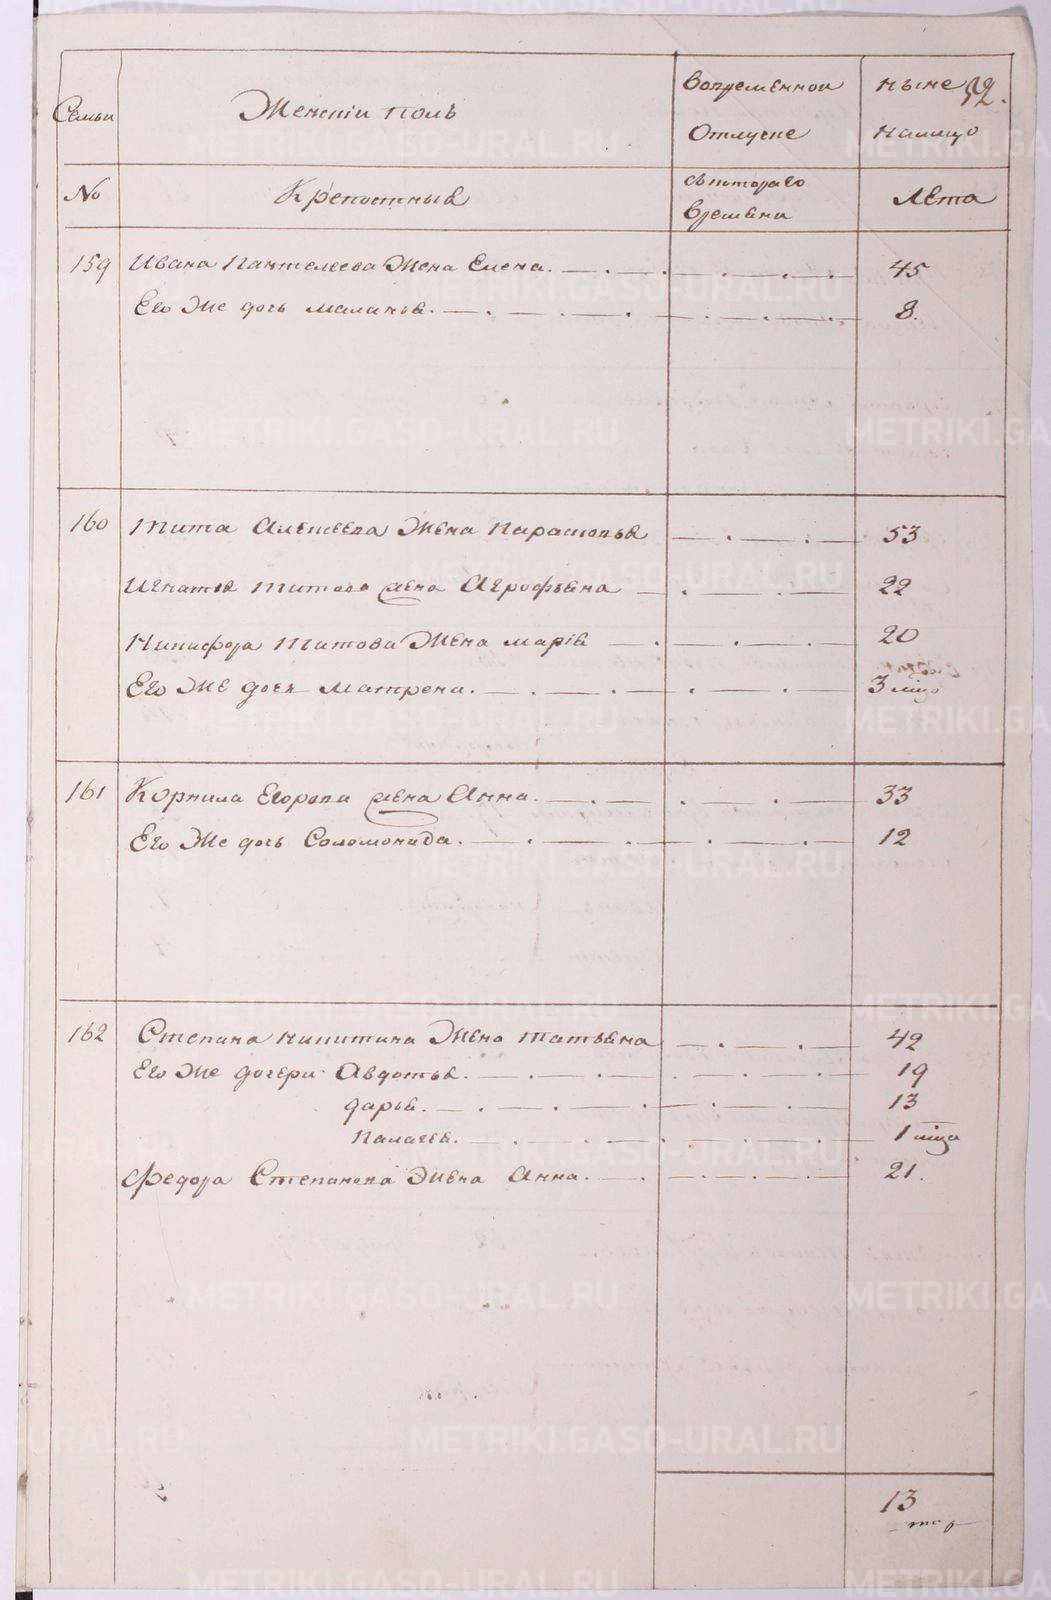 Семьи
Женскiй полъ
Вовременной
Отлучке
ныне
налицо
52.
No
Крепостныя
съкотораго
времени
Лета
159 Ивана Пантелеева Жена Елена. 45
Его Же дочь маланья. 8.
160 Тита Алексеева Жена Парасковья 53
Игнатья Титова жена Агрофѣна 22
Никифора Титова Жена марiя 20
Его Же дочь Матрена. 3 мцо
161 Корнила Егорова жена Анна. 33
Его Же дочь Соломонида. 12
162 Степана никитина Жена татьяна 42
Его Же дочери Авдотья. 19
дарья. 13
Палагея. 1 мца
Федора Степанова Жена Анна. 21.
13
METRIKI.GASO-URAL.RU